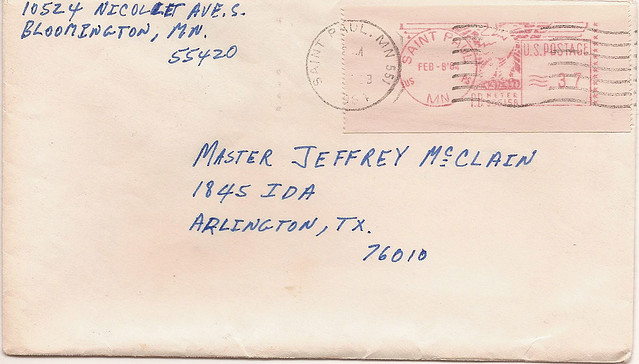 10524 NICOLLET AVE, S.
BLOOMINGTON, MN.
55420
SAINT PAUL, MN 551
SAINT PAUL
FEB-8'8
MN
U.S. POSTAGE
37
P.B. METER
MASTER JEFFREY McCLAIN
1845 IDA
ARLINGTON, TX.
76010